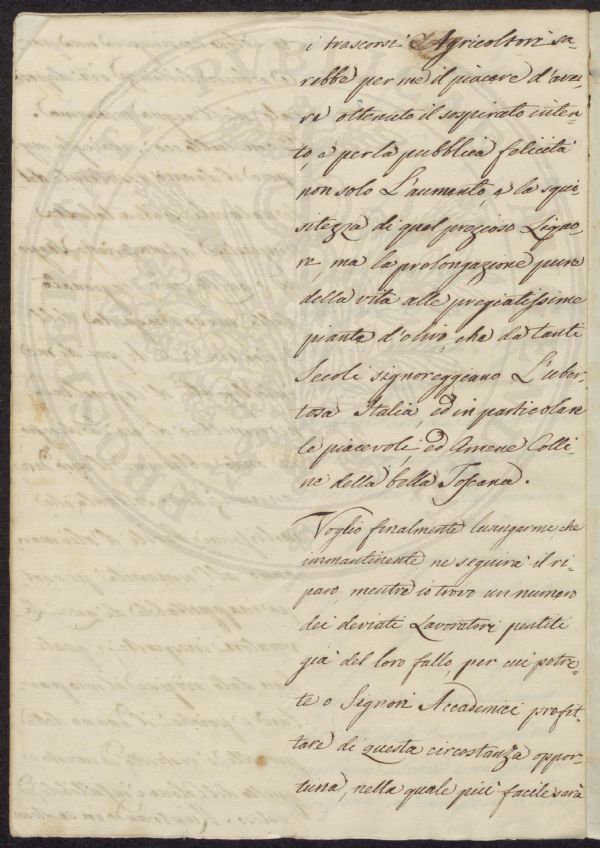 i trascorsi Agricoltori sa-
rebbe per me il piacere d'ave-
re ottenuto il sospirato inten-
to, e per la pubblica felicità
non solo L'aumento, e la squi-
sitezza di quel prezioso Liquo-
re, ma la prolongazione pure
della vita alle pregiatissime
piante d'olivo, che da tanti
Secoli signoreggiano L'uber-
tosa Italia, ed in particolare
le piacevoli, ed Amene Colli-
ne della bella Toscana.
Voglio finalmente lusingarmi, che
immantinente ne seguirà il ri-
paro, mentre io trovo un numero
dei deviati Lavoratori pentiti
già del loro fallo, per cui potre-
te o Signori Accademici profit-
tare di questa circostanza oppor-
tuna, nella quale più facile sarà